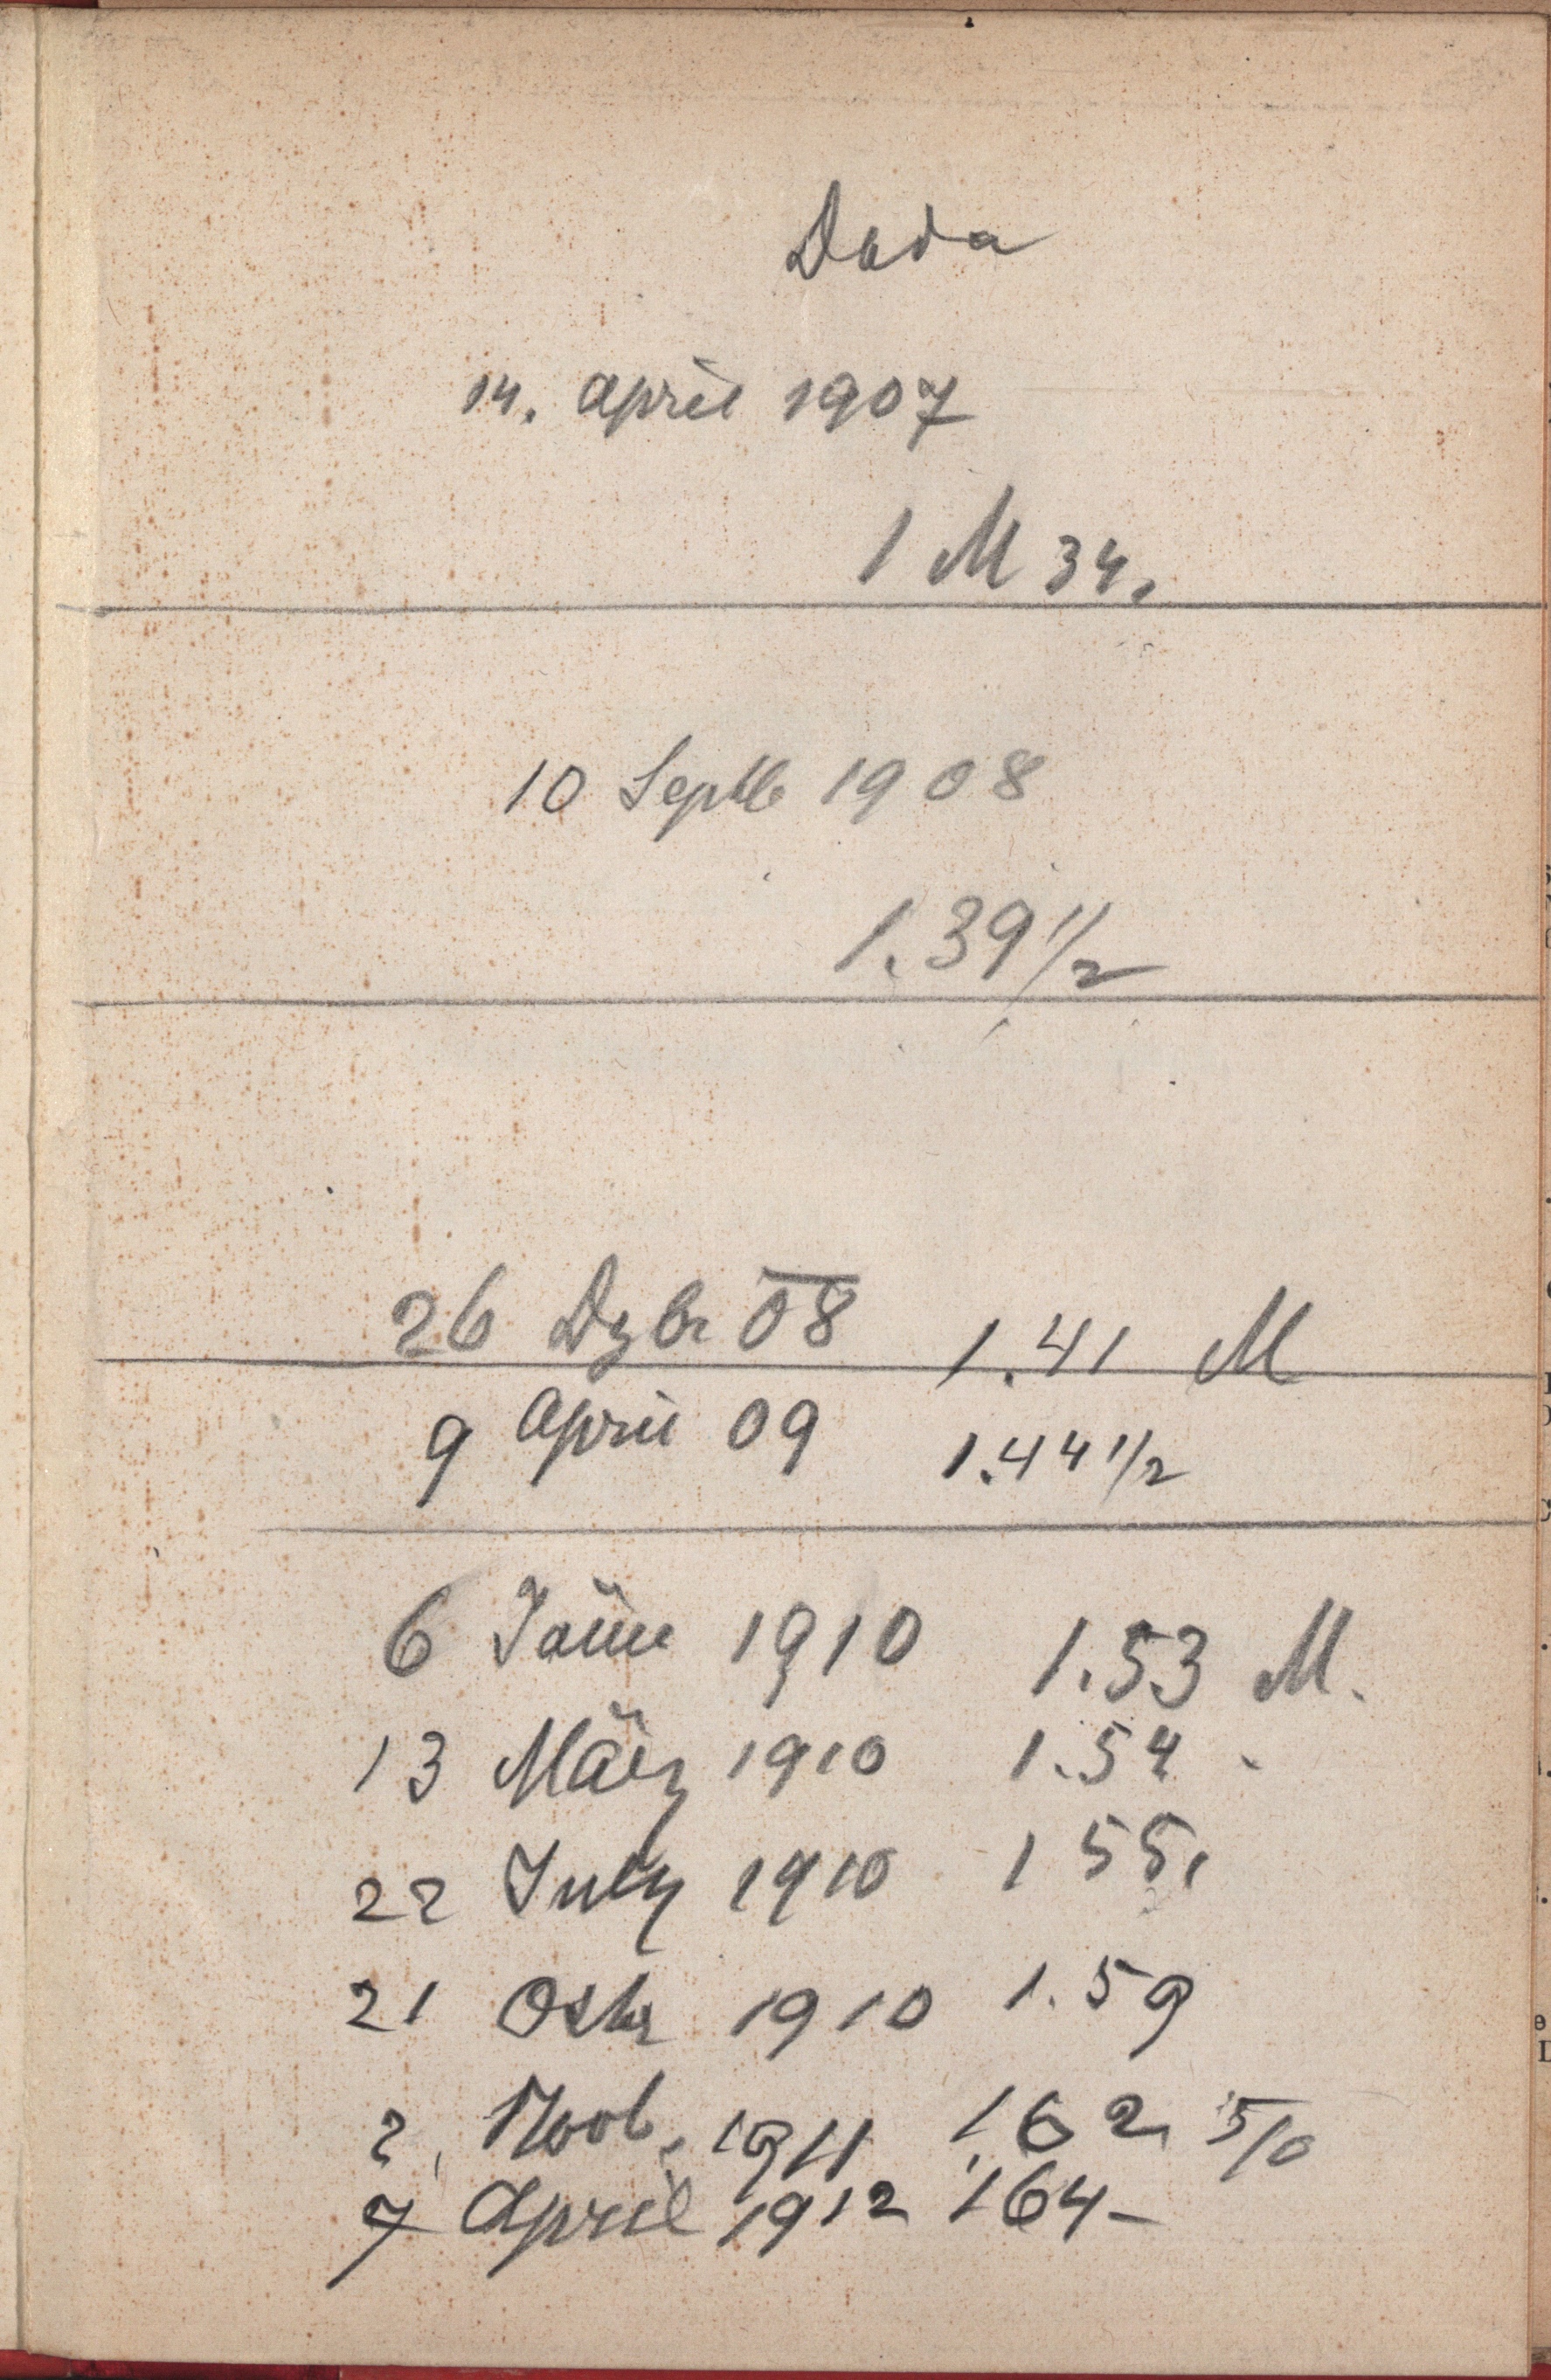 Doda
14. April 1907
1 M 34.
10 Septb 1908
1.39 1/2
26 Dzbr 08 1.41 M
9 April 09 1.44 1/2
6 Jäner 1910 1.53 M.
13 März 1910 1.54 -
22 July 1910 1 55,
21 Oktr 1910 1.59
2, Novb. 1911 1,62 5/10
7 April 1912 164-